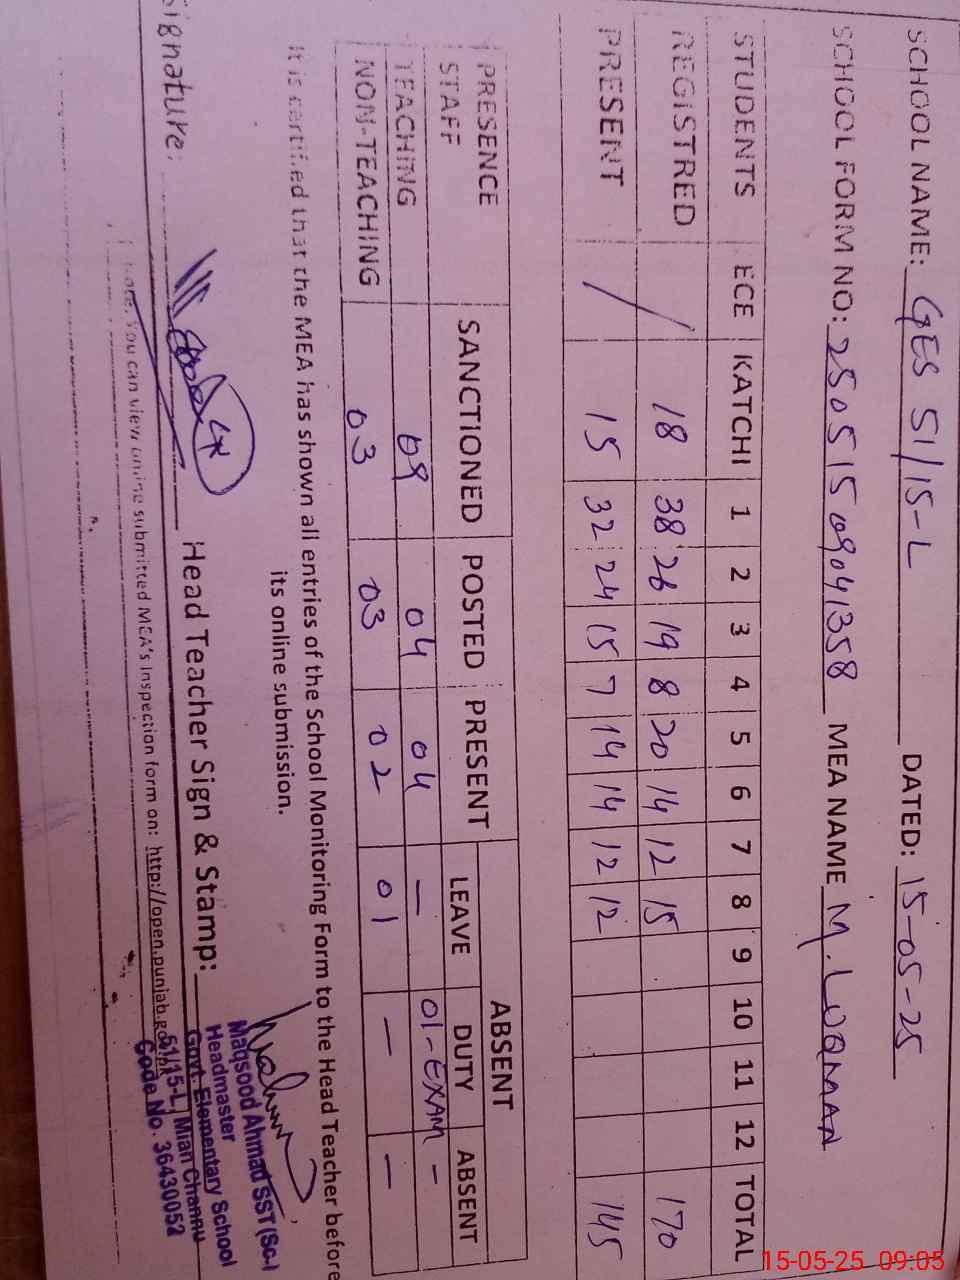 SCHOOL NAME: GES 51/15-L DATED: 15-05-25
SCHOOL FORM NO: 25051509041358 MEA NAME M. LUQMAN
STUDENTS ECE KATCHI 1 2 3 4 5 6 7 8 9 10 11 12 TOTAL
REGISTRED / 18 38 26 19 8 20 14 12 15 170
PRESENT / 15 32 24 15 7 14 14 12 12 145
PRESENCE STAFF SANCTIONED POSTED PRESENT ABSENT
LEAVE DUTY ABSENT
TEACHING 09 04 04 — 01-EXAM -
NON-TEACHING 03 03 02 01 — —
It is certified that the MEA has shown all entries of the School Monitoring Form to the Head Teacher before
its online submission.
Signature: Head Teacher Sign & Stamp:
Maqsood Ahmad SST(Sc-)
Headmaster
Govt. Elementary School
51/15-L, Mian Channu
Code No. 36430052
Note: You can view online submitted MEA's Inspection form on: http://open.punjab.gov.pk
15-05-25 09:05